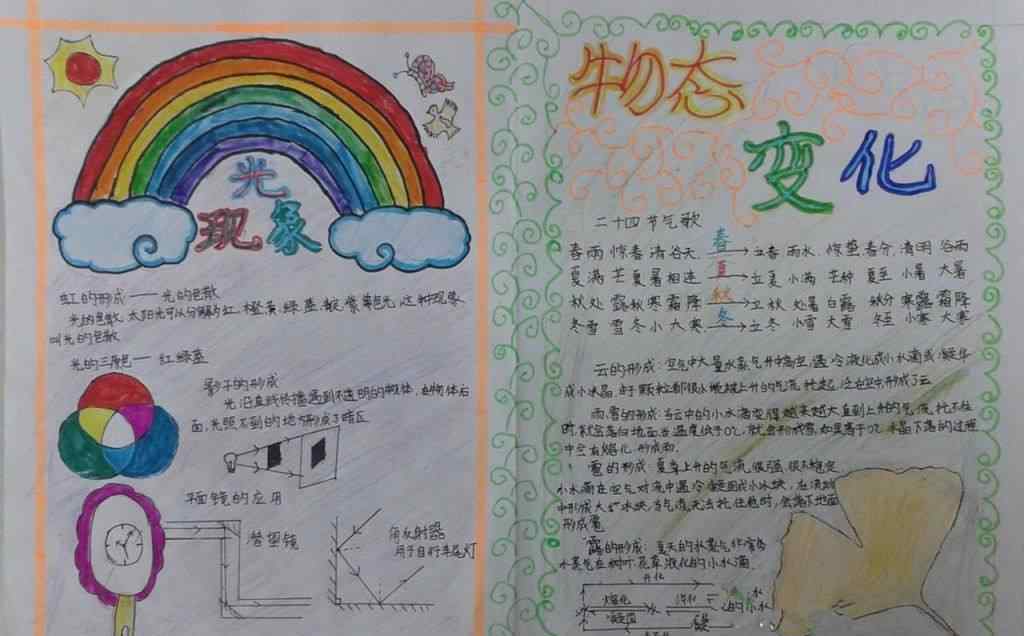 光
现象
虹的形成——光的色散
光的色散:太阳光可以分解为红、橙、黄、绿、蓝、靛、紫色光,这种现象
叫光的色散
光的三原色——红绿蓝
影子的形成
光沿直线传播遇到不透明的物体,在物体后
面,光照不到的地方形成了暗区
平面镜的应用
潜望镜
角反射器
用于自行车尾灯
物态
变化
二十四节气歌
春雨惊春清谷天 春 立春 雨水 惊蛰 春分 清明 谷雨
夏满芒夏暑相连 夏 立夏 小满 芒种 夏至 小暑 大暑
秋处露秋寒霜降 秋 立秋 处暑 白露 秋分 寒露 霜降
冬雪雪冬小大寒 冬 立冬 小雪 大雪 冬至 小寒 大寒
云的形成:空气中大量水蒸气升中高空,遇冷液化成小水滴或凝华
成小冰晶,时颗粒都很小被上升的气流托起,
雨、雪的形成:当云中的小水滴变得越来越大直到上升的气流托不住
时,就会落向地面当温度低于0℃,就会形成雪,如果高于0℃冰晶下落的过程
中会有熔化形成雨.
雹的形成:夏季上升的气流很强很不稳定
小水滴在空气对流中遇冷凝固成小冰块,在流动
中形成大冰块,当气流无法托住它时,落下地面
形成雹
露的形成:夏天的水蒸气
水蒸气在树叶花草液化的小水滴
升华
熔化
凝固